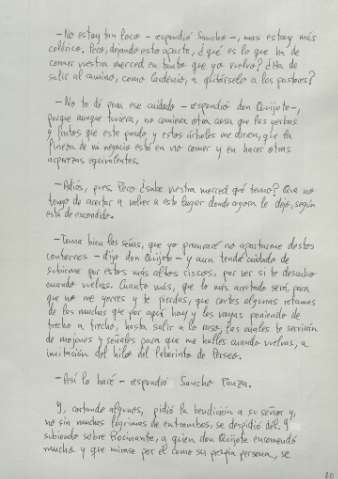 - No estoy tan loco - respondió Sancho -, mas estoy más
colérico. Pero, dejando esto aparte, ¿qué es lo que ha de
comer vuestra merced en tanto que yo vuelvo? ¿Ha de
salir al camino, como Cardenio, a quitárselo a los pastores?
- No te dé pena ese cuidado - respondió don Quijote -,
porque aunque tuviera, no comiera otra cosa que las yerbas
y frutos que este prado y estos árboles me dieren, que la
fineza de mi negocio está en no comer y en hacer otras
asperezas equivalentes.
- Adiós, pues. Pero ¿sabe vuestra merced qué temo? Que no
tengo de acertar a volver a este lugar donde agora le dejo, según
está de escondido.
- Toma bien las señas, que yo procuraré no apartarme destos
contornos - dijo don Quijote - y aun tendré cuidado de
subirme por estos más altos riscos, por ver si te descubro
cuando vuelvas. Cuanto más, que lo más acertado será, para
que no me yerres y te pierdas, que cortes algunas retamas
de las muchas que por aquí hay y las vayas poniendo de
trecho a trecho, hasta salir a lo raso, las cuales te servirán
de mojones y señales para que me halles cuando vuelvas, a
imitación del hilo del laberinto de Perseo.
- Así lo haré - respondió Sancho Panza.
Y, cortando algunas, pidió la bendición a su señor y,
no sin muchas lágrimas de entrambos, se despidió dél. Y
subiendo sobre Rocinante, a quien don Quijote encomendó
mucho y que mirase por él como su propia persona, se